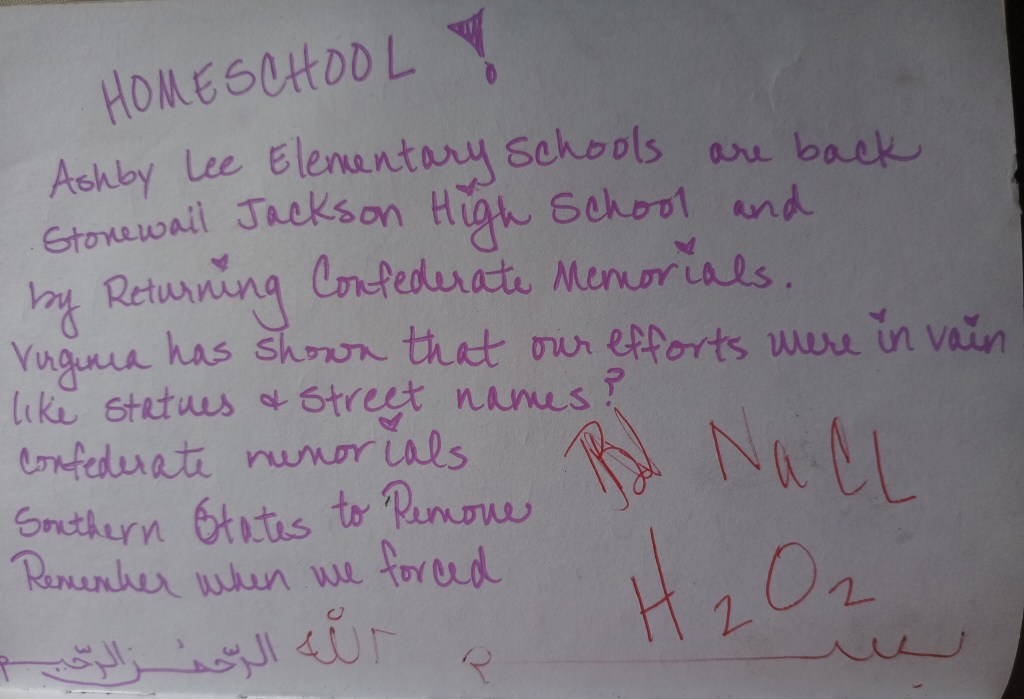 HOMESCHOOL!
Ashby Lee Elementary Schools are back
Stonewall Jackson High School and
by Returning Confederate Memorials.
Virginia has shown that our efforts were in vain
like statues & street names?
Confederate memorials
Southern States to Remove
Remember when we forced
NaCL
H2O2
بسم الله الرّحمٰن الرّحيم